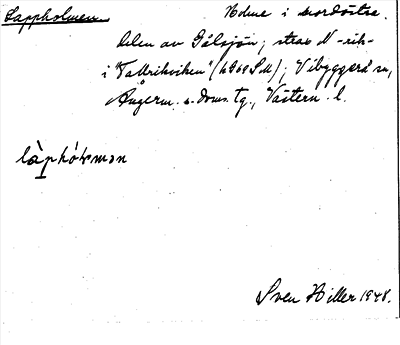 Lappholmen Holme i nordöstra
delen av Gålsjön, strax N
i "Tallrikviken" (69 SM); Vibyggerå sn,
Ångerm. s. doms. tg., Västern. l.
Sven Hiller 1948.